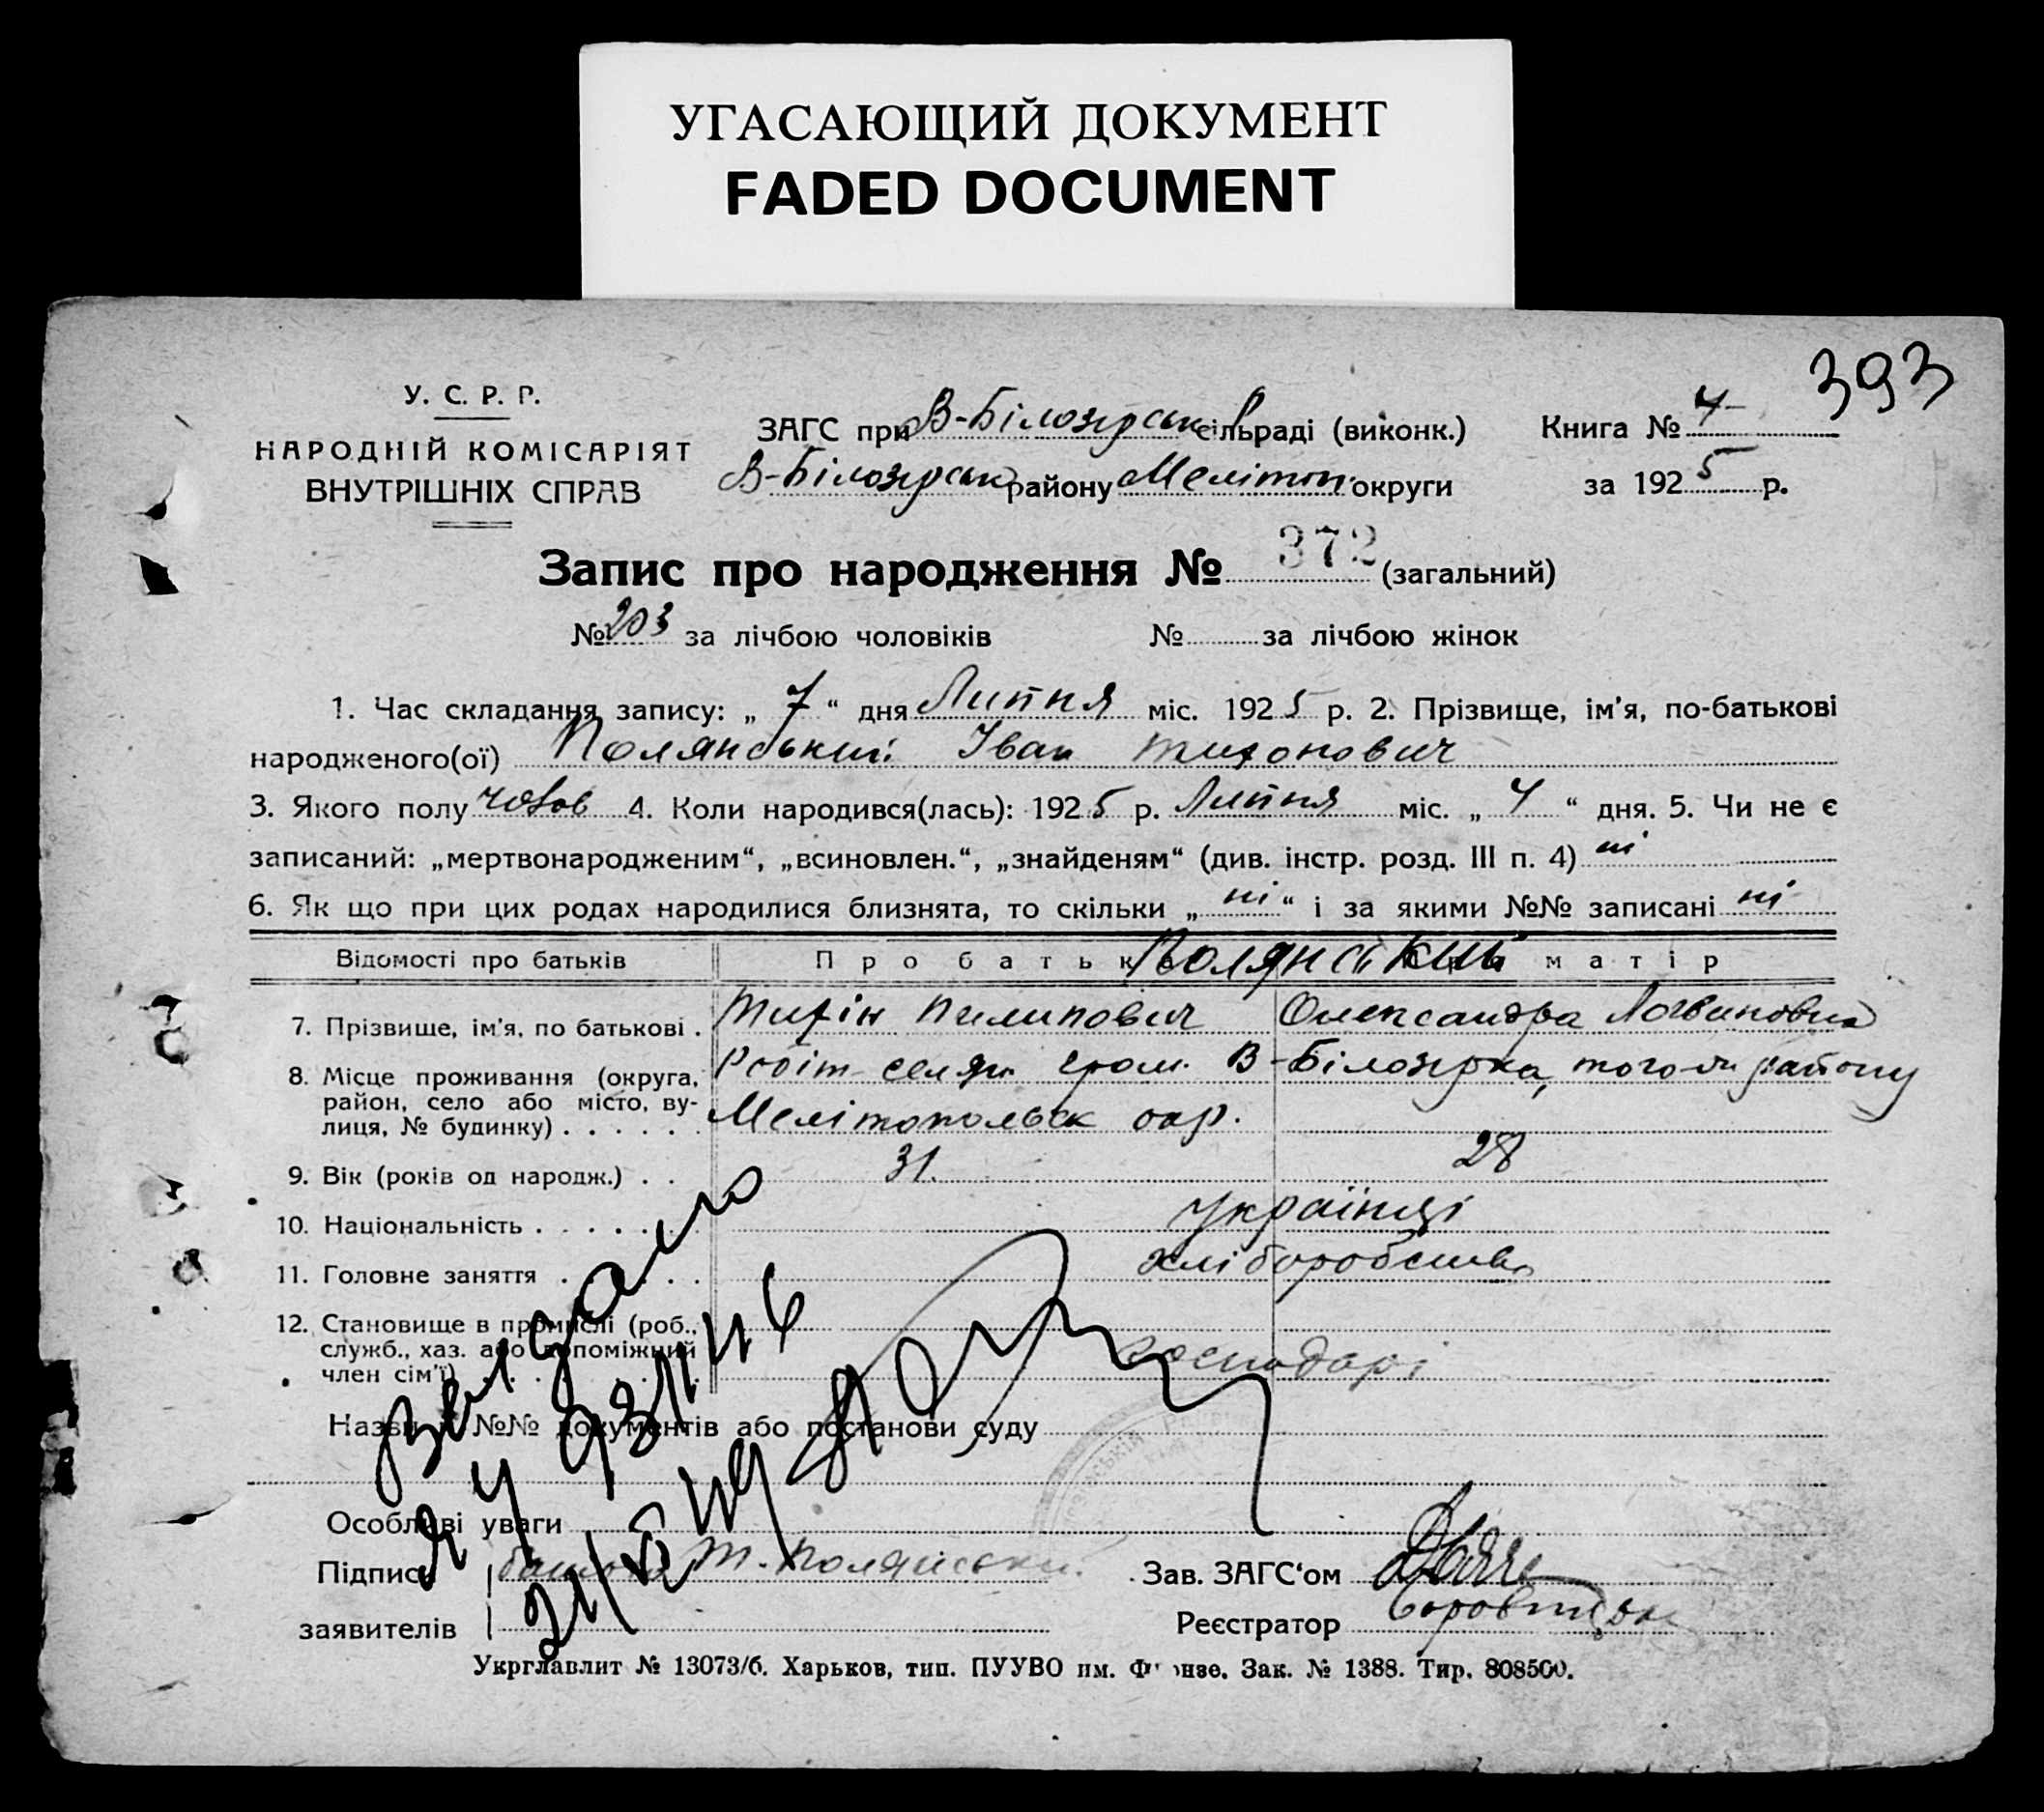 УГАСАЮЩИЙ ДОКУМЕНТ
FADED DOCUMENT
393
У. С. Р. Р.
НАРОДНІЙ КОМІСАРІЯТ
ВНУТРІШНІХ СПРАВ
ЗАГС при В-Білозірськ сільраді (виконк.)
В-Білозірськ району Мелітоп. округи
Книга № 4
за 1925 р.
Запис про народження № 372 (загальний)
№ 203 за лічбою чоловіків № за лічбою жінок
1. Час складання запису: „ 7 “ дня Липня міс. 1925 р. 2. Прізвище, ім'я, по-батькові
народженого(ої) Полянський Іван Тихонович
3. Якого полу чолов 4. Коли народився(лась): 1925 р. Липня міс. „ 4 “ дня. 5. Чи не є
записаний: „мертвонародженим“, „всиновлен.“, „знайденям“ (див. інстр. розд. III п. 4) ні
6. Як що при цих родах народилися близнята, то скільки „ ні “ і за якими №№ записані ні
Відомості про батьків Про батька Полянський матір
7. Прізвище, ім'я, по батькові . Тихін Пилипович Олександра Логвиновна
8. Місце проживання (округа, район, село або місто, вулиця, № будинку) . . . . . . селян. гром. В-Білозірка, того-ж району
Мелітопольск окр.
9. Вік (років од народж.) . . 31. 28
10. Національність . . . . . . українці
11. Головне заняття . . . . . хліборобство
12. Становище в промислі (роб., служб., хаз. або допоміжний член сім'ї) . . . . . господарі
Назви й №№ документів або постанови суду
Особливі уваги
Підписи заявителів батько Т. Полянськи.
Видано
Зав. ЗАГС'ом
Реєстратор
Укрглавлит № 13073/б. Харьков, тип. ПУУВО им. Фрунзе. Зак. № 1388. Тир. 808500.